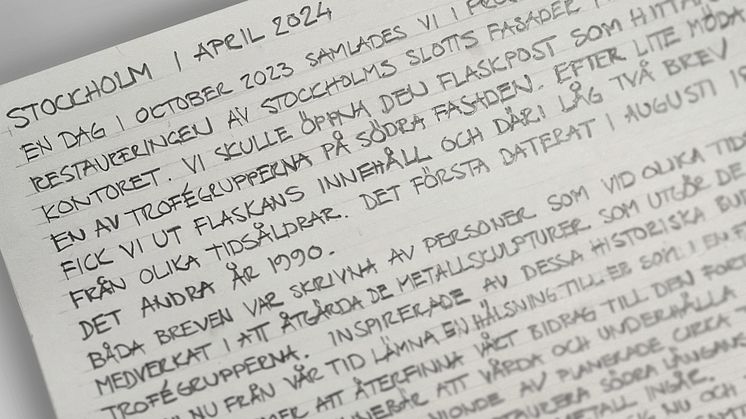 STOCKHOLM I APRIL 2024
EN DAG I OCTOBER 2023 SAMLADES VI I
RESTAURERINGEN AV STOCKHOLMS SLOTTS FASADER
KONTORET. VI SKULLE ÖPPNA DEN FLASKPOST SOM HITTATS
EN AV TROFÉGRUPPERNA PÅ SÖDRA FASADEN. EFTER LITE MÖDA
FICK VI UT FLASKANS INNEHÅLL OCH DÄRI LÅG TVÅ BREV
FRÅN OLIKA TIDSÅLDRAR. DET FÖRSTA DATERAT I AUGUSTI
DET ANDRA ÅR 1990.
BÅDA BREVEN VAR SKRIVNA AV PERSONER SOM VID OLIKA
MEDVERKAT I ATT ÅTGÄRDA DE METALLSKULPTURER SOM UTGÖR DE
TROFÉGRUPPERNA. INSPIRERADE AV DESSA HISTORISKA
NU FRÅN VÅR TID LÄMNA EN HÄLSNING TILL ER SOM I EN
ATT ÅTERFINNA VÅRT BIDRAG TILL DEN
ATT VÅRDA OCH UNDERHÅLLA
AV PLANERADE CIRKA
SÖDRA LÄNGANS
INGÅR.
NU OCH